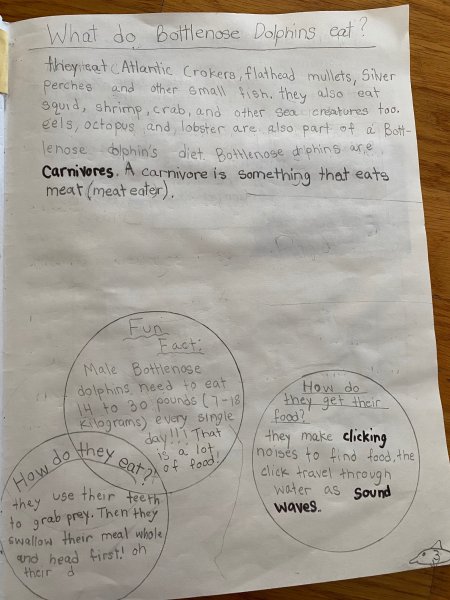 What do Bottlenose Dolphins eat?
they eat Atlantic Crokers, flathead mullets, Silver
perches and other small fish. they also eat
squid, shrimp, crab, and other sea creatures too.
eels, octopus and, lobster are also part of a Bott-
lenose dolphin's diet. Bottlenose dolphins are
Carnivores. A carnivore is something that eats
meat (meat eater).
Fun
Fact:
Male Bottlenose
dolphins need to eat
14 to 30 pounds (7-18
kilograms) every single
day!!! That
is a lot
of food!
How do they eat?
they use their teeth
to grab prey. Then they
swallow their meal whole
and head first! oh
their d
How do
they get their
food?
they make clicking
noises to find food, the
click travel through
water as sound
waves.
3